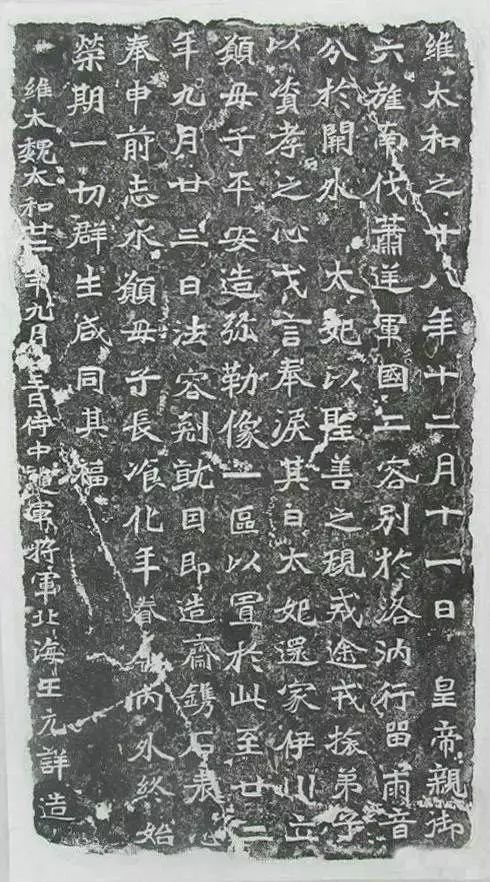 維太和之十八年十二月十一日皇帝親御
六旌南伐蕭逆軍國二容別於洛汭行留兩音
分於闕外太妃以聖善之規戒途戎旅弟子
以資孝之心戈言奉淚其日太妃還家伊川立
願母子平安造弥勒像一區以置於此至廿二
年九月廿三日法容剋就因即造齋鐫石表心
奉申前志永願母子長飡化年眷內外終始
榮期一切群生咸同其福
維大魏太和廿二年九月廿三日侍中護軍將軍北海王元詳造